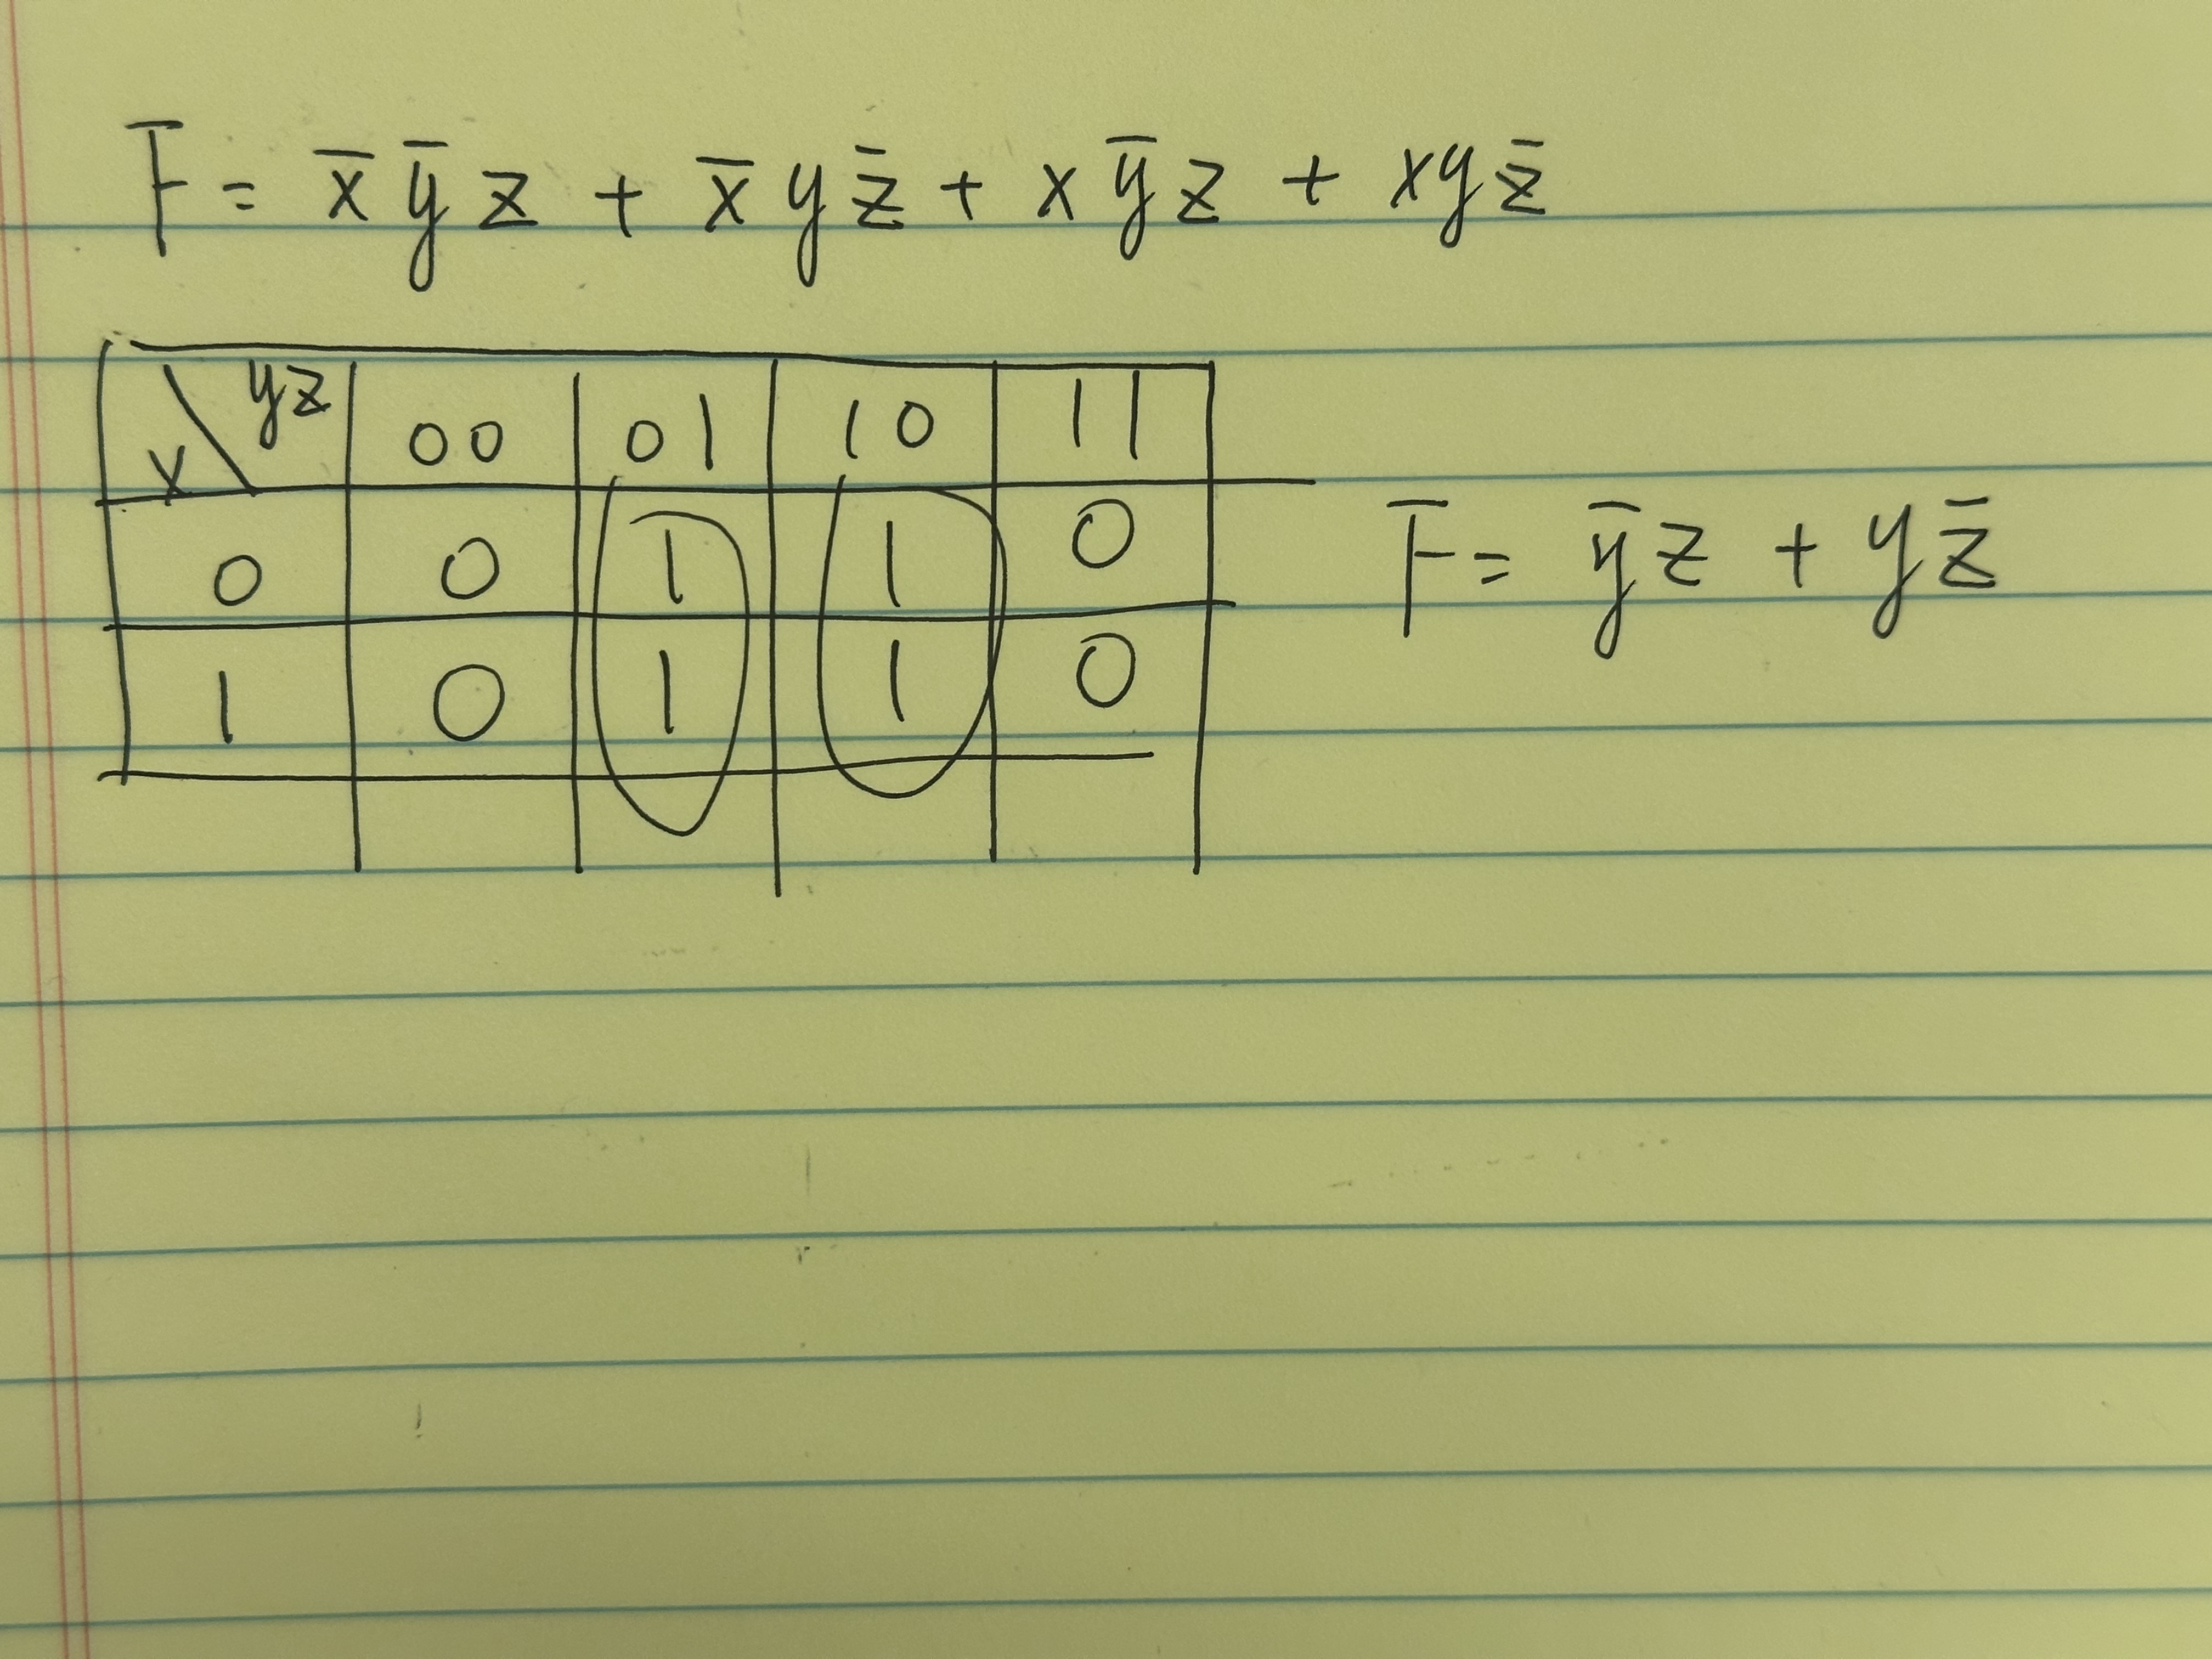 F = x̅ y̅ z + x̅ y z̅ + x y̅ z + x y z̅
x \ yz | 00 | 01 | 10 | 11
0 | 0 | 1 | 1 | 0
1 | 0 | 1 | 1 | 0
F = y̅ z + y z̅